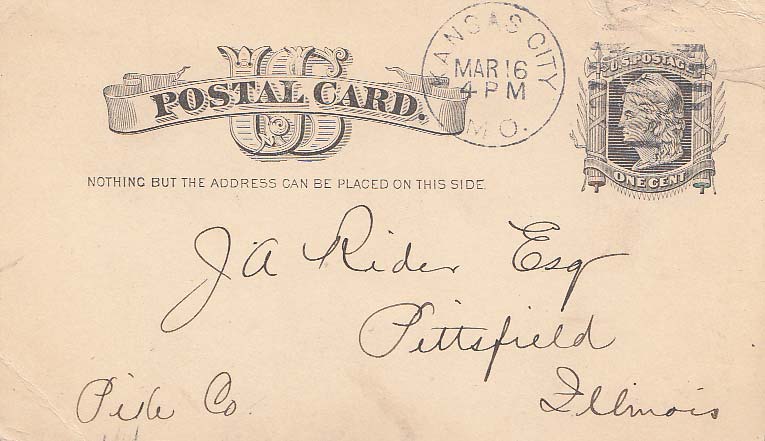 US
POSTAL CARD.
KANSAS CITY
MAR 16
4 PM
MO.
U.S. POSTAGE
ONE CENT
NOTHING BUT THE ADDRESS CAN BE PLACED ON THIS SIDE.
J A Rider Esq
Pittsfield
Pike Co. Illinois